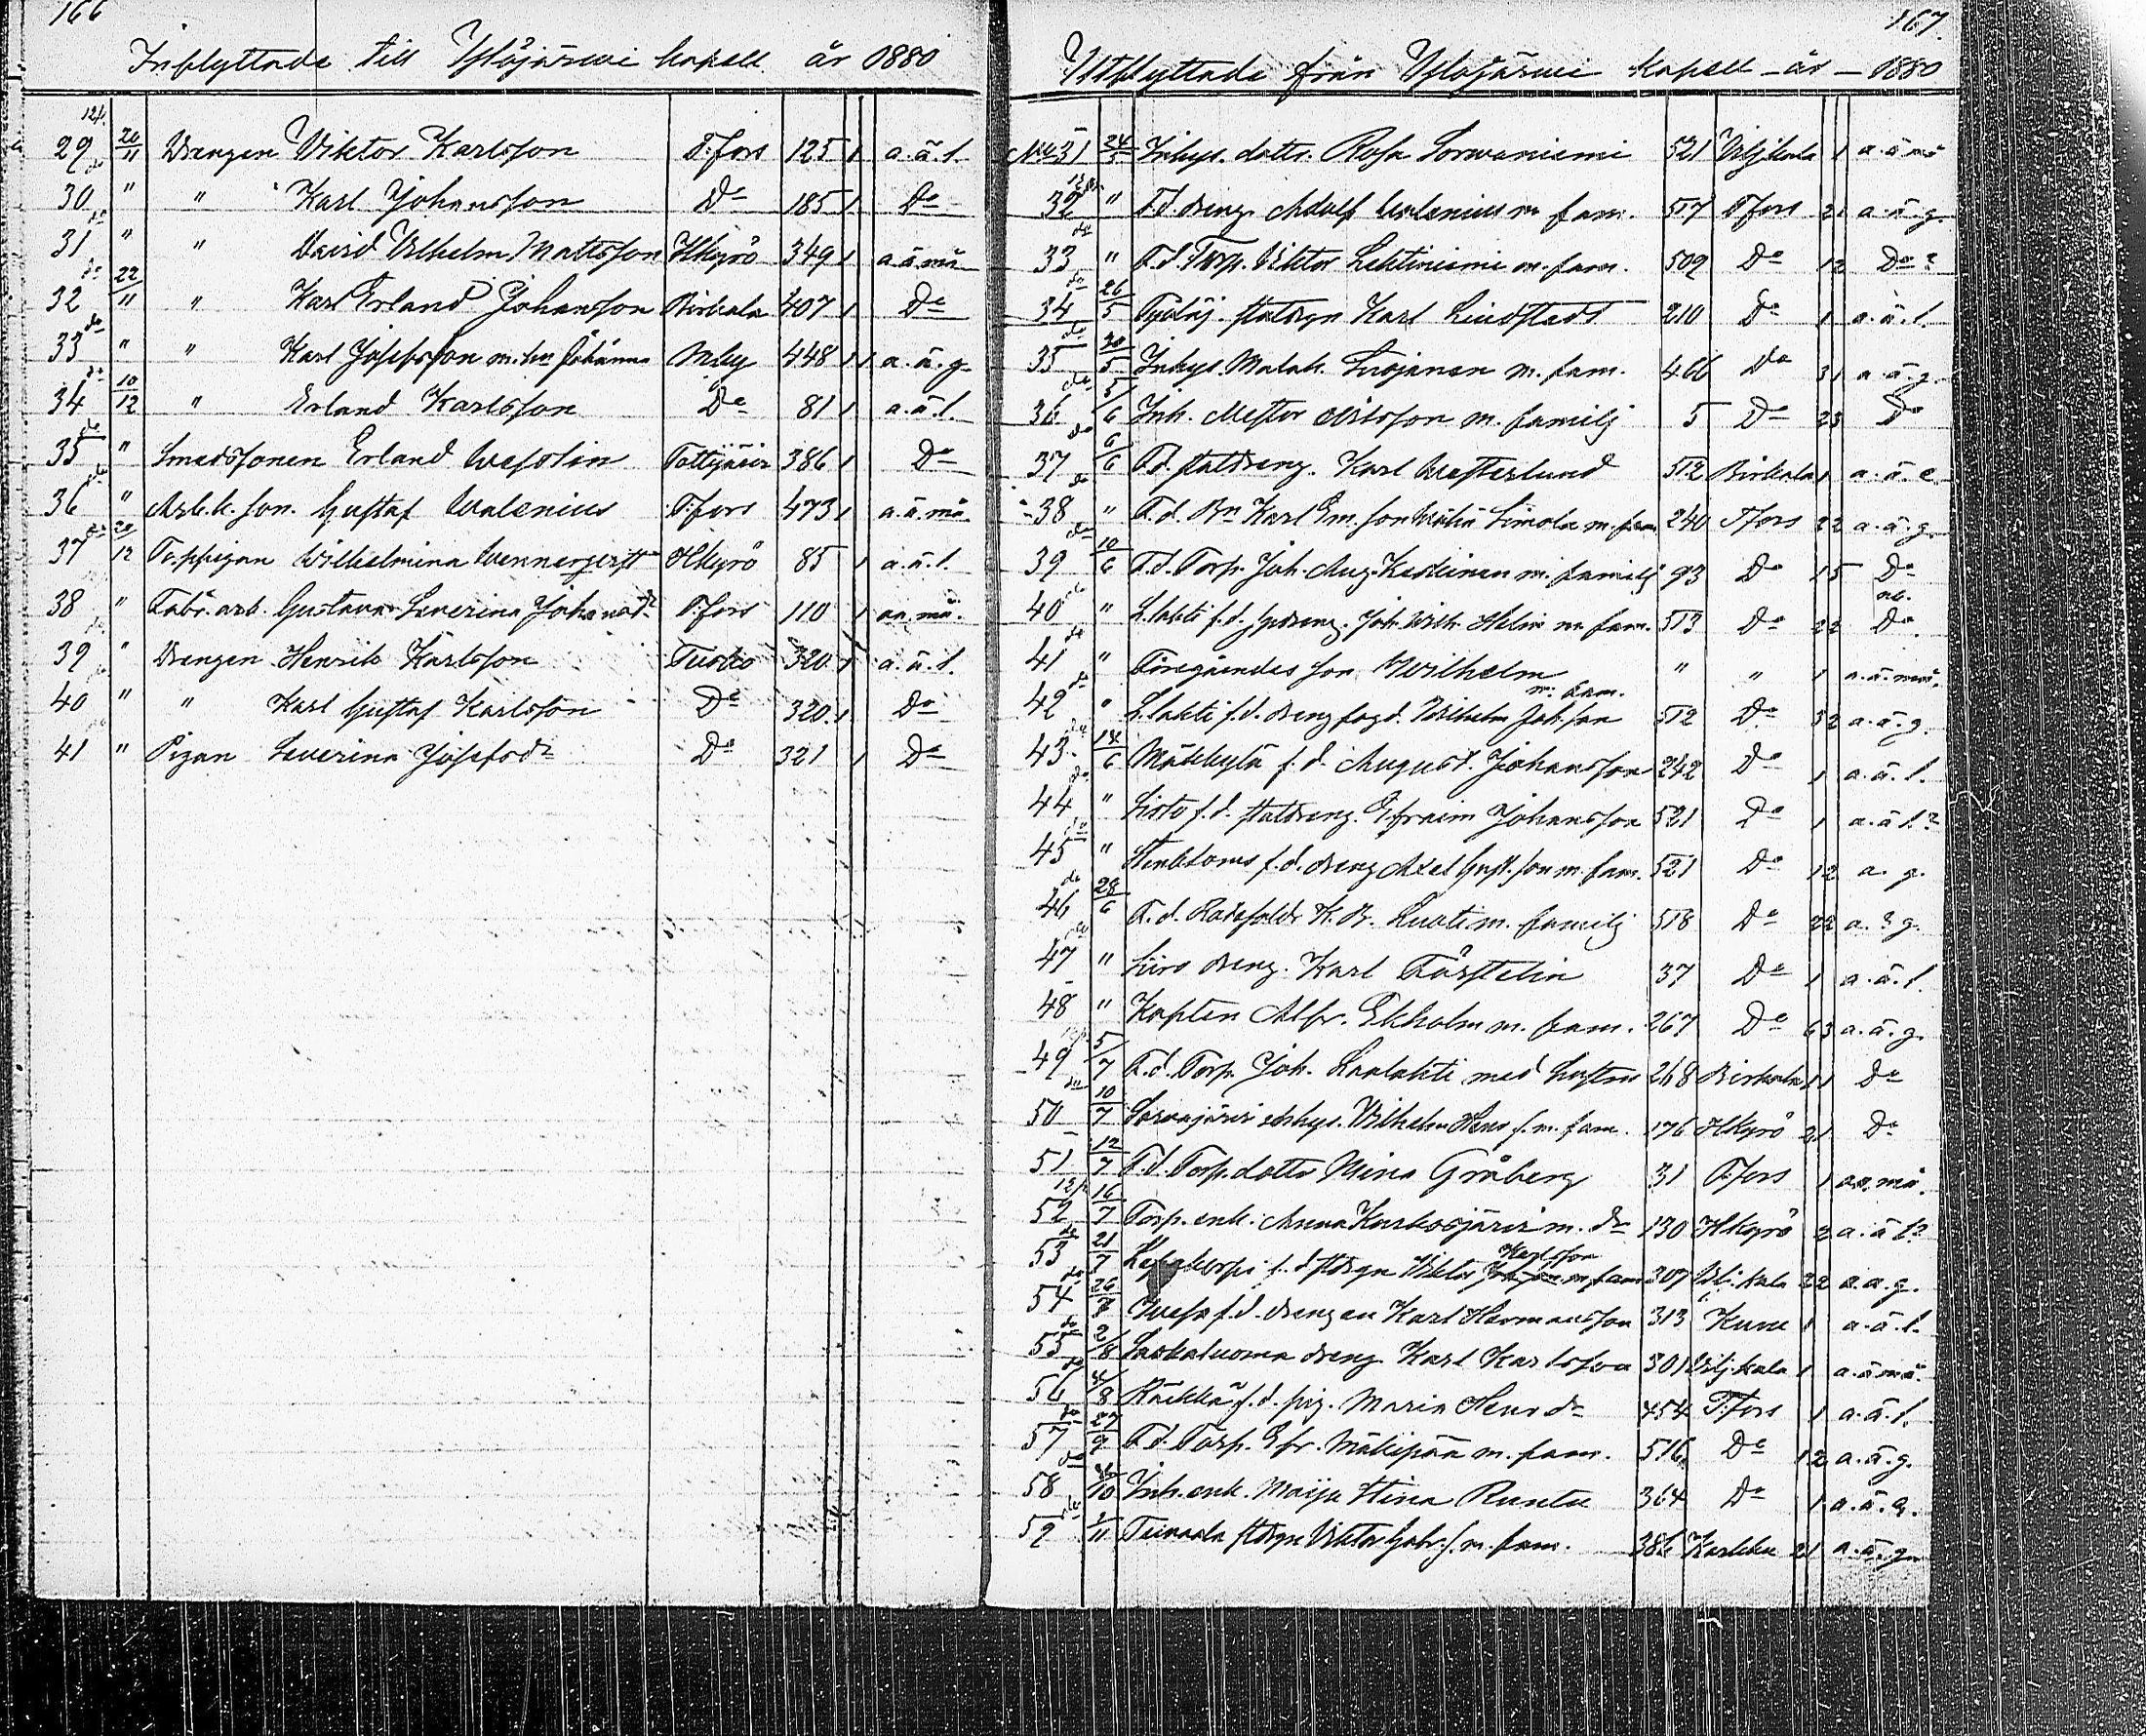 166
Inflyttade till Ylöjärwi kapell år 1880
29 20/11 Drengen Viktor Karlsson T:fors 125 1 a.ä.l.
30 " " Karl Johansson Do 185 1 Do
31 " " David Vilhelm Mattsson HKyrö 349 1 a.ä.må
32 22/11 " Karl Erland Johansson Birkala 407 1 Do
33 " " Karl Josefsson m. hu Johanna Mby 448 1 1 a.ä.g.
34 10/12 " Erland Karlsson Do 81 1 a.ä.l.
35 " Smedssonen Erland Wesslin Tottijärvi 386 1 Do
36 " Arb.k. son. Gustaf Walenius T:fors 473 1 a.ä.må
37 20/12 Wilhelmina HKyrö 85 1 a.ä.l.
38 " Fabr. arb. Gustava Severina Johansdr T.fors 110 1 må.
39 " Drengen Henrik Karlsson 320 1 a.ä.l.
40 " " Karl Gustaf Karlsson Do 320 1 Do
41 " Pigan Severina Josefsdr Do 321 1 Do
167.
Utflyttade från Ylöjärwi kapell - år - 1880
No 31 24/5 Inhys. dottr. Rosa Sorwaniemi 521 Viljkala 1 a.ä.må
32 " F.d. dreng. Adolf Walenius m fam. 517 T:fors 21 a.ä.g.
33 " F.d. Torp. Viktor Lehtiniemi m. fam. 509 Do 12 Do?
34 26/5 statdrgn Karl Lindstedt 210 Do 1 a.ä.l.
35 30/5 Inhys. Malak. m. fam. 466 Do 31 a.ä.g.
36 5/6 Inh. Nilsson m. familj 5 Do 23 Do
37 6/6 F.d. statdreng. Karl Westerlund 512 Birkala 1 a.ä.e.
38 " F.d. Bn Karl Em. son Simola m. fam 240 T:fors 22 a.ä.g.
39 10/6 F.d. Torp. Joh. Aug. Keskinen m. familj 93 Do 15 Do
40 " f.d. dreng. Joh. Wilh. Helin m fam. 513 Do 22 Do
41 " Föregåendes son Wilhelm " " 1 a.ä.må.
42 " f.d. drengfogd. Wilhelm Joh.son m. fam. 512 Do 32 a.ä.g.
43 14/6 Mäkkylä f.d. August Johansson 242 Do 1 a.ä.l.
44 " f.d. statdreng. Efraim Johansson 521 Do 1 a.ä.l.?
45 " f.d. dreng Axel Gust. son m. fam. 521 Do 12 a. g.
46 28/6 F.d. K. R. m. familj 518 Do 22 a.?g.
47 " Siivo dreng. Karl Förstelin 37 Do 1 a.ä.l.
48 " Kapten Alfr. Ekholm m. fam. 267 Do 63 a.ä.g.
49 5/7 F.d. Torp. Joh. Laalahti med hustru 268 Birkala 11 Do
50 10/7 Wilhelm Henr. s. m. fam. 176 HKyrö 21 Do
51 12/7 F.d. Torp. dottr Mina Gråberg 31 T.fors 1 må.
52 16/7 Torp. enk. Anna Karkosjärvi m. dr 130 HKyrö 2 a.ä.l?
53 21/7 f.d. stdrgn Viktor Karlsson m fam 307 Vilj.kala 22 a.ä.g.
54 26/7 f.d. drengen Karl Hermansson 313 Kuru 1 a.ä.l.
55 2/8 Laakaluoma dreng Karl Karlsson 301 Vilj.kala 1 a.ä.må.
56 4/8 Räikkä f.d. pig. Maria Henrdr 454 T.fors 1 a.ä.l.
57 27/9 F.d. Torp. Efr. Mäkipää m. fam. 516 Do 12 a.ä.g.
58 Inh. enk. Maija Stina Runtu 364 Do 1 a.ä.
59 Teivaala stdrgn Viktor m. fam. 386 Karkku 21 a.ä.g.